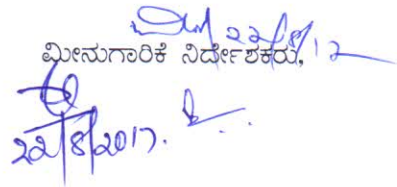 22/8/17
ಮೀನುಗಾರಿಕೆ ನಿರ್ದೇಶಕರು,
22/8/2017.